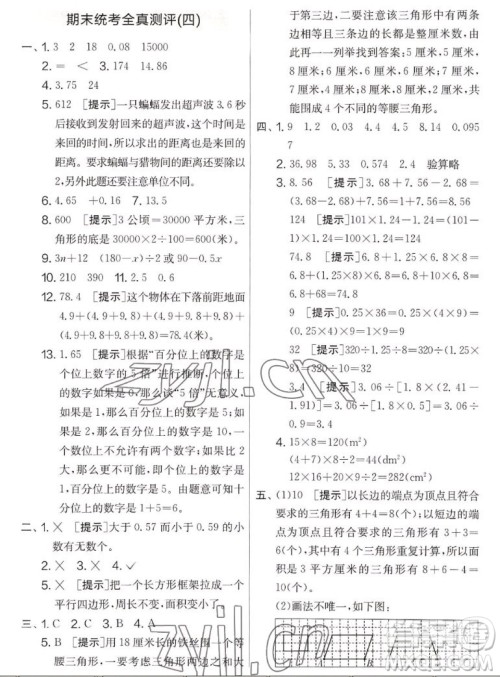 期末统考全真测评(四)
一、1. 3 2 18 0.08 15000
2. = < 3. 174 14.86
4. 3.75 24
5. 612 [提示]一只蝙蝠发出超声波 3.6 秒
后接收到发射回来的超声波,这个时间是
来回的时间,所以求出的距离也是来回的
距离。要求蝙蝠与猎物间的距离还要除以
2,另外此题还要注意单位不同。
6. 4.65 +0.16 7. 13.5
8. 600 [提示]3 公顷=30000 平方米,三
角形的底是 30000×2÷100=600(米)。
9. 3n+12 (180-x)÷2或90-0.5x
10. 210 390 11. 2.5 0.6
12. 78.4 [提示]这个物体在下落前距地面
4.9+(4.9+9.8)+(4.9+9.8+9.8)+
(4.9+9.8+9.8+9.8)=78.4(米)。
13. 1.65 [提示]根据“百分位上的数字是
个位上数字的 5 倍”可知,个位上的数字是
1,个位上的数字如果是 2,那么百分位上
的数字如果是 0,那么谈“5 倍”无意义,如果
是 1,那么百分位上的数字是 5。
二、1. × [提示]大于 0.57 而小于 0.59 的小
数有无数个。
2. × 3. × 4. ✓
5. × [提示]把一个长方形框架拉成一个
平行四边形,周长不变,面积变小了。
三、1. C 2. B 3. A 4. C
5. B [提示]用 18 厘米长的铁丝围一个等
腰三角形,一要考虑三角形两边之和大
于第三边,二要注意该三角形中有两条
边相等且三条边的长都是整厘米数,即
8 厘米,8 厘米,2 厘米;7 厘米,7 厘米,4
厘米;6 厘米,6 厘米,6 厘米;5 厘米,5
厘米,8 厘米,共
能围成 4 个不同的等腰三角形。
四、1. 9 1.2 0.03 4.4 5 8.14 0.095
7
2. 36.98 5.33 0.574 2.4 验算略
3. 8.56 [提示]3.68+7.56-2.68
=(3.68-2.68)+7.56=1+7.56=8.56
124 [提示]101×1.24-1.24=(101-
1)×1.24=100×1.24=124
74.8 [提示]6.8+1.25×6.8×8=
6.8+(1.25×8)×6.8=6.8+10×6.8
=6.8+68=74.8
9 [提示]0.25×36=0.25×(4×9)=
(0.25×4)×9=1×9=9
32 [提示]320÷1.25÷8=320÷(1.25×8)
=320÷10=32
3.4 [提示]3.06÷[1.8×(2.41-
1.91)]=3.06÷(1.8×0.5)=3.06÷
0.9=3.4
4. 15×8=120(m²)
(4+7)×8÷2=44(dm²)
12×16+20×9÷2=282(cm²)
五、(1)10 [提示]以长边的端点为顶点且符合
要求的三角形有 8(个);以短边的端点为顶
点且符合要求的三角形有 3+3=6
(个),其中有 4 个三角形重复计算,所以面
积是 3 平方厘米的三角形有 8+6-4=
10(个)。
(2)画法不唯一,如下图: